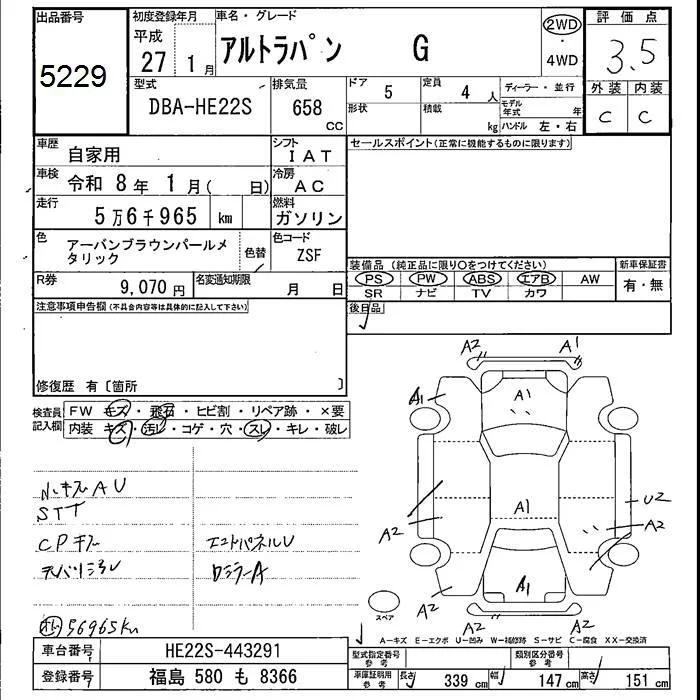 出品番号
5229
初度登録年月
平成
27 1月
車名・グレード
アルトラパン G
2WD
・
4WD
評価点
3.5
外装 内装
C C
型式
DBA-HE22S
排気量
658
CC
ドア 5
定員 4人
形状
積載 kg
ディーラー・並行
モデル年式 年
ハンドル 左・右
車歴 自家用
シフト IAT
車検 令和 8年 1月( 日)
冷房 AC
走行 5万6千965 km
燃料 ガソリン
色 アーバンブラウンパールメタリック
色替
色コード ZSF
R券 9,070円
名変通知期限 月 日
セールスポイント(正常に機能するものに限ります)
装備品(純正品に限り〇をつけてください)
PS PW ABS エアB AW
SR ナビ TV カワ
新車保証書
有・無
後日品
注意事項申告欄(不具合内容等は具体的に記入して下さい)
修復歴 有〔箇所 〕
検査員記入欄
FW キズ・飛石・ヒビ割・リペア跡・×要
内装 キズ・汚レ・コゲ・穴・スレ・キレ・破レ
STT
56965km
A2 A1
A1 A1
A1
A2 U2
A2
A1
A2 A2
A2 A2
スペア
A-キズ E-エクボ U-凹み W-補修跡 S-サビ C-腐食 XX-交換済
車台番号 HE22S-443291
登録番号 福島 580 も 8366
型式指定番号 参考
類別区分番号 参考
車庫証明用 参考
長さ 339 cm
幅 147 cm
高さ 151 cm